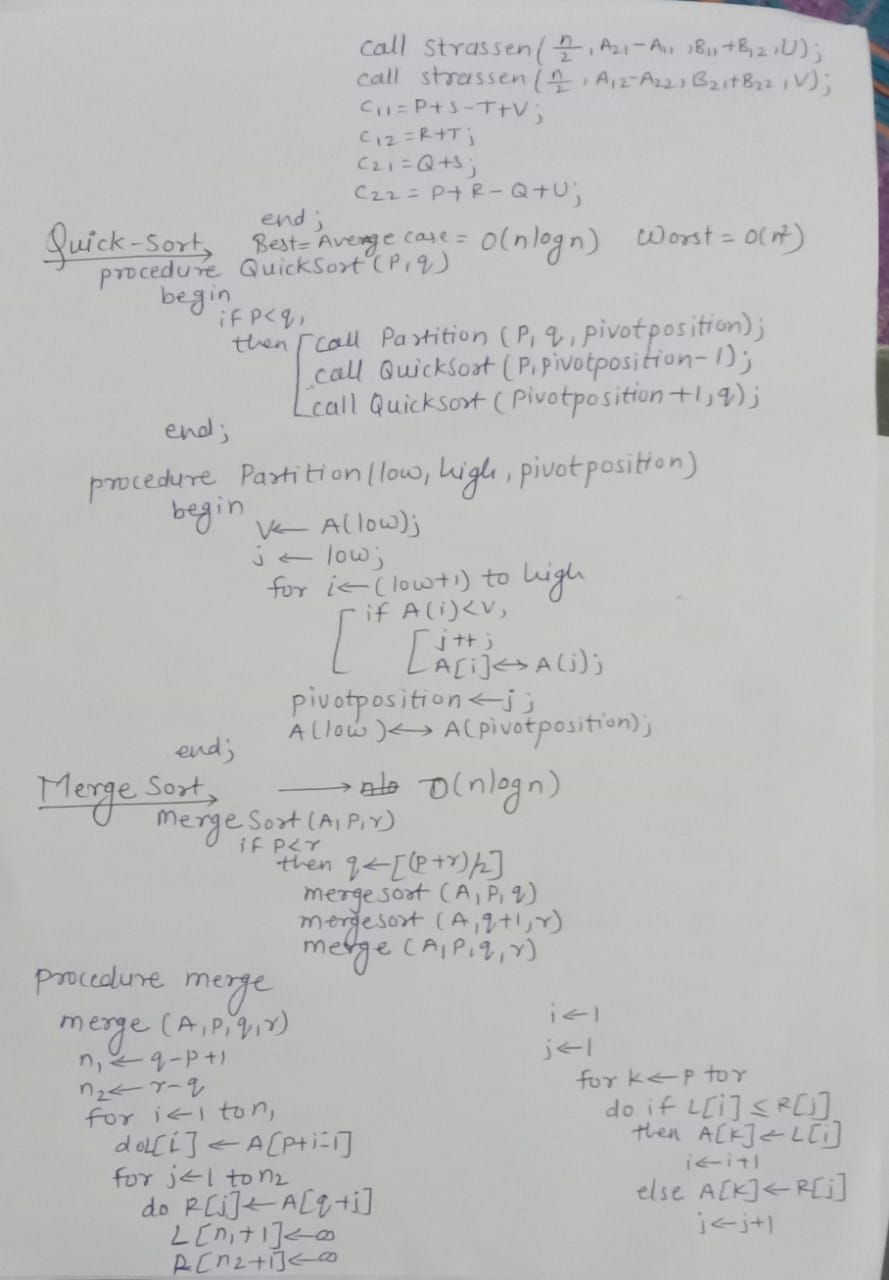 call strassen(n/2, A21-A11, B11+B12, U);
call strassen(n/2, A12-A22, B21+B22, V);
C11=P+S-T+V;
C12=R+T;
C21=Q+S;
C22=P+R-Q+U;
end;
Quick-Sort, Best=Average case = O(nlogn) Worst = O(n²)
procedure QuickSort (P,q)
begin
if P<q,
then [call Partition (P, q, pivotposition);
call QuickSort (P, pivotposition-1);
call Quicksort (pivotposition+1,q);
end;
procedure Partition(low, high, pivotposition)
begin
V← A(low);
j ← low;
for i←(low+1) to high
[if A(i)<V,
[j++;
A[i]↔A(j);
pivotposition←j;
A(low)↔A(pivotposition);
end;
Merge Sort, → O(nlogn)
Merge Sort (A,P,r)
if P<r
then q←[(P+r)/2]
mergesort (A,P,q)
mergesort (A,q+1,r)
merge (A,P,q,r)
procedure merge
merge (A,P,q,r)
n1←q-p+1
n2←r-q
for i←1 to n1
do L[i]←A[p+i-1]
for j←1 to n2
do R[j]←A[q+j]
L[n1+1]←∞
R[n2+1]←∞
i←1
j←1
for k←P to r
do if L[i]≤R[j]
then A[k]←L[i]
i←i+1
else A[k]←R[j]
j←j+1